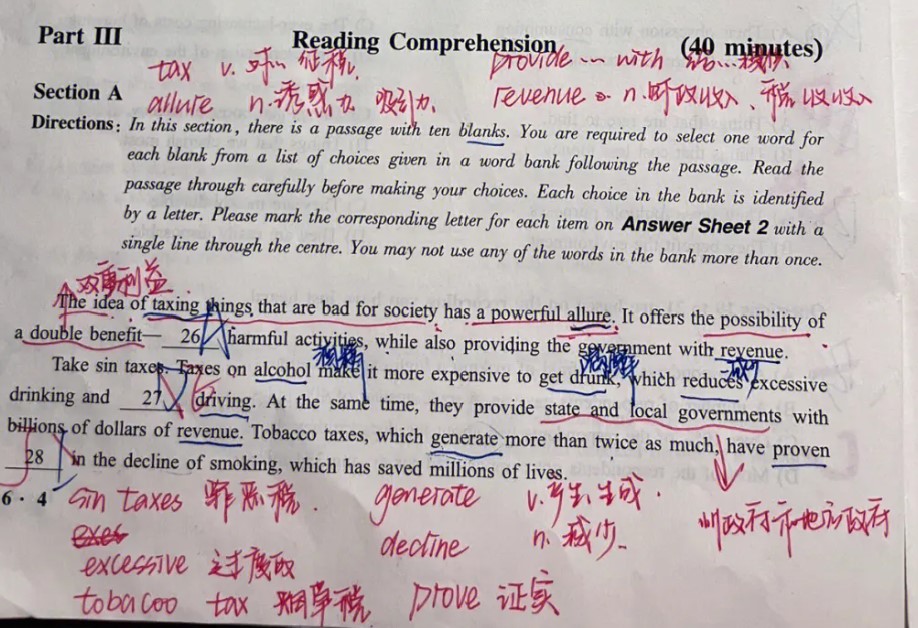 Part III Reading Comprehension (40 minutes)
tax v. 对… 征税. provide … with 给…
Section A
allure n. 诱惑力 吸引力. revenue n. 财政收入、税收收入
Directions: In this section, there is a passage with ten blanks. You are required to select one word for
each blank from a list of choices given in a word bank following the passage. Read the
passage through carefully before making your choices. Each choice in the bank is identified
by a letter. Please mark the corresponding letter for each item on Answer Sheet 2 with a
single line through the centre. You may not use any of the words in the bank more than once.
双重利益
The idea of taxing things that are bad for society has a powerful allure. It offers the possibility of
a double benefit— 26 harmful activities, while also providing the government with revenue.
减少
Take sin taxes. Taxes on alcohol make it more expensive to get drunk, which reduces excessive
drinking and 27 driving. At the same time, they provide state and local governments with
billions of dollars of revenue. Tobacco taxes, which generate more than twice as much, have proven
28 in the decline of smoking, which has saved millions of lives.
6·4 sin taxes 罪恶税. generate v. 产生、生成. 州政府和地方政府
exes decline n. 减少.
excessive 过度的
tobacoo tax 烟草税 prove 证实